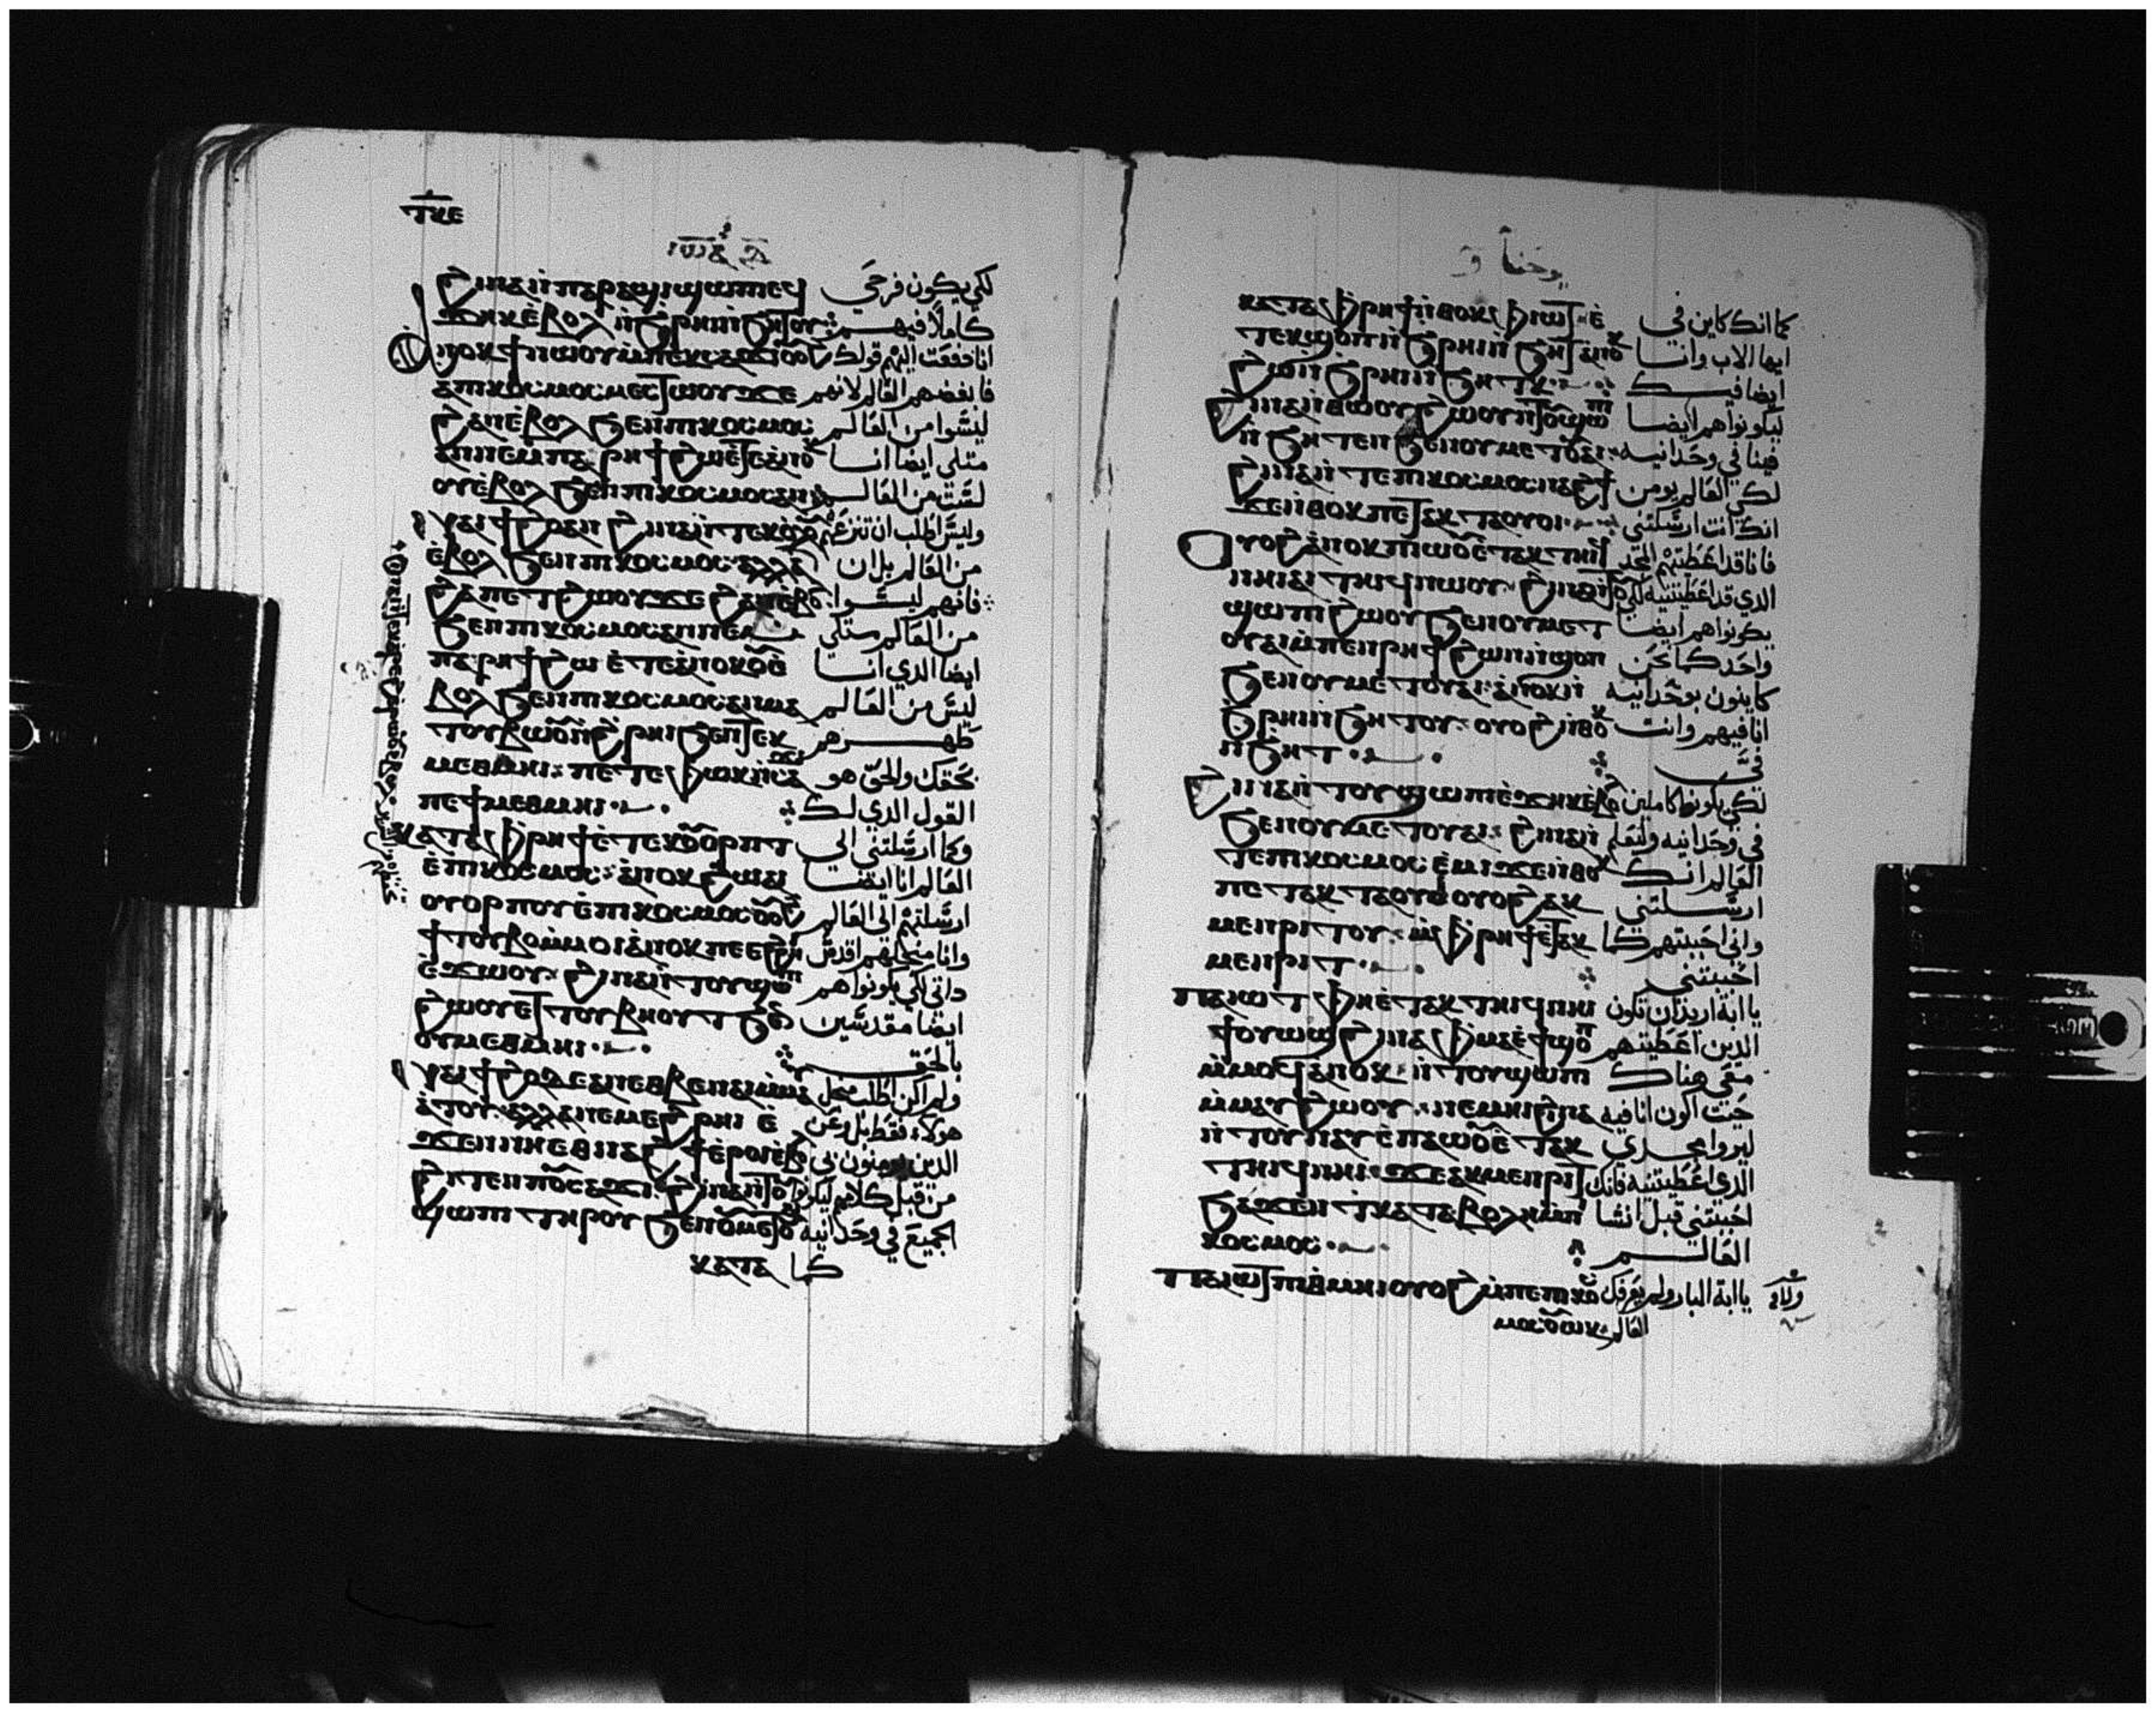 ⲧⲕⲉ
ⲓⲱⲁ
ϩⲓⲛⲁⲛ̀ⲡⲁⲣⲁϣⲓϣⲱⲡⲉϥ لكي يكون فرحي
ϫⲏⲕⲉ̀ⲃⲟⲗ ⲛ̀ϧⲣⲏⲓⲛ̀ϧⲏⲧⲟⲩ كاملاً فيهم
ⲁⲛⲟⲕϯⲛⲱⲟⲩⲙ̀ⲡⲉⲕⲥⲁϫⲓ انا دفعت اليهم قولك
ⲁⲡⲓⲕⲟⲥⲙⲟⲥⲙⲉⲥⲧⲱⲟⲩϫⲉ فابغضهم العالم لانهم
ϩⲁⲛⲉ̀ⲃⲟⲗ ϧⲉⲛⲡⲓⲕⲟⲥⲙⲟⲥ ليسوا من العالم
ⲁⲛⲛⲉⲙ̀ⲡⲁⲣⲏϯϩⲱⲉ̀ⲧⲉⲁⲛⲟⲕ مثلي ايضا انا
ⲟⲩⲉ̀ⲃⲟⲗ ϧⲉⲛⲡⲓⲕⲟⲥⲙⲟⲥⲁⲛ لست من العالم
ⲛⲁⲓϯϩⲟⲁⲛ ϩⲓⲛⲁⲛ̀ⲧⲉⲕⲟⲗⲟⲩ وليس اطلب ان تنزعهم
ⲉ̀ⲃⲟⲗ ϧⲉⲛⲡⲓⲕⲟⲥⲙⲟⲥ ⲁⲗⲗⲁ من العالم بل ان
فانهم ليسوا
ϧⲉⲛⲡⲓⲕⲟⲥⲙⲟⲥⲁⲛⲛⲉⲙ̀ من العالم مثلي
ⲡⲁⲣⲏϯϩⲱ ⲉ̀ⲧⲉⲁⲛⲟⲕⲟⲩⲉ̀ ايضا الذي انا
ⲃⲟⲗ ϧⲉⲛⲡⲓⲕⲟⲥⲙⲟⲥⲁⲛⲙⲁ ليس من العالم
ⲧⲟⲩⲃⲱⲟⲩⲛ̀ϩ̀ⲣⲏⲓϧⲉⲛⲧⲉⲕ طهرهم
ⲙⲉⲑⲙⲏⲓ ⲡⲉⲧⲉⲫⲱⲕⲛ̀ⲥⲁϫⲓ بحقك والحق هو
ⲡⲉϯⲙⲉⲑⲙⲏⲓ القول الذي لك
ⲕⲁⲧⲁⲫ̀ⲣⲏϯⲉ̀ⲧⲉⲕⲟⲩⲟⲣⲡⲧ وكما ارسلتني الى
ⲉ̀ⲡⲓⲕⲟⲥⲙⲟⲥ ⲁⲛⲟⲕϩⲱⲁⲓ العالم انا ايضا
ⲟⲩⲟⲣⲡⲟⲩⲉ̀ⲡⲓⲕⲟⲥⲙⲟⲥ ارسلتهم الى العالم
ϯⲧⲟⲩⲃⲟⲙ̀ⲙⲟⲓⲁⲛⲟⲕⲡⲉⲉ̀ϩⲣⲏⲓ وانا من اجلهم اقدس
ⲉ̀ϫⲱⲟⲩ ϩⲓⲛⲁⲛ̀ⲧⲟⲩϣⲱⲡⲓ ذاتي لكي يكونوا هم
ϩⲱⲟⲩⲉⲩⲧⲟⲩⲃⲏⲟⲩⲧϧⲉⲛ ايضا مقدسين
ⲟⲩⲙⲉⲑⲙⲏⲓ بالحق
ⲛⲁⲓϯϩⲟϫⲉⲁⲛⲉⲑⲃⲉⲛⲁⲓⲙ̀ⲙⲁ ولم اكن اطلب من اجل
ⲩⲁⲧⲟⲩ ⲁⲗⲗⲁⲛⲉⲙⲉϩⲣⲏⲓ ⲉ̀ هولاء فقط بل وعن
ϫⲉⲛⲛⲏⲉⲑⲛⲁϩϯⲉ̀ⲣⲟⲓⲉ̀ⲃⲟⲗ الذين يومنون بي
ϩⲓⲧⲉⲛⲡⲟⲩⲥⲁϫⲓ ϩⲓⲛⲁⲛ̀ⲧⲟⲩ من قبل كلامهم ليكونوا
ϣⲱⲡⲓ ⲧⲏⲣⲟⲩ ϧⲉⲛⲟⲩⲙⲉⲧⲟⲩⲁⲓ الجميع في وحدانيه
ⲕⲁⲧⲁ كما
يوحنا
ⲕⲁⲧⲁⲫ̀ⲣⲏϯⲛ̀ⲑⲟⲕⲫ̀ⲓⲱⲧ ⲉ̀ كما انك كاين في
ⲧⲉⲕϣⲟⲡⲛ̀ϧ̀ⲣⲏⲓⲛ̀ϧⲏⲧⲁⲛⲟⲕ ايها الاب وانا
ϩⲱⲛ̀ϧ̀ⲣⲏⲓⲛ̀ϧⲏⲧⲕ ايضا فيك
ϩⲓⲛⲁⲛ̀ⲑⲱⲟⲩϩⲱⲟⲩⲛ̀ⲧⲟⲩϣⲱⲡⲓ ليكونوا هم ايضا
ⲛ̀ϧⲏⲧⲉⲛ ϧⲉⲛⲟⲩⲙⲉⲧⲟⲩⲁⲓ فينا في وحدانيه
ϩⲓⲛⲁⲛ̀ⲧⲉⲡⲓⲕⲟⲥⲙⲟⲥⲛⲁϩϯ لكي العالم يومن
ϫⲉⲛ̀ⲑⲟⲕⲡⲉⲧⲁⲕⲧⲁⲟⲩⲟⲓ انك انت ارسلتني
ⲟⲩⲟϩⲁⲛⲟⲕⲡⲓⲱⲟⲩⲉ̀ⲧⲁⲕⲧⲏⲓϥ فانا قد اعطيتهم المجد
ⲛⲏⲓⲁⲓⲧⲏⲓϥⲛⲱⲟⲩ ϩⲓⲛⲁⲛ̀ⲧⲟⲩ الذي قد اعطيتنيه لكي
ϣⲱⲡⲓϩⲱⲟⲩϧⲉⲛⲟⲩⲙⲉⲧ يكونوا هم ايضا
ⲟⲩⲁⲓⲙ̀ⲡⲉⲛⲣⲏϯϩⲱⲛⲛ̀ϣⲟⲡ واحد كما نحن
ϧⲉⲛⲟⲩⲙⲉⲧⲟⲩⲁⲓ ⲁⲛⲟⲕⲛ̀ كاينون بوحدانيه
ϧ̀ⲣⲏⲓⲛ̀ϧⲏⲧⲟⲩ ⲟⲩⲟϩⲛ̀ⲑⲟⲕ انا فيهم وانت
ⲛ̀ϧⲏⲧ فيَّ
ϩⲓⲛⲁⲛ̀ⲧⲟⲩϣⲱⲡⲉⲩϫⲏⲕⲉ̀ⲃⲟⲗ لكي يكونوا كاملين
ϧⲉⲛⲟⲩⲙⲉⲧⲟⲩⲁⲓ ϩⲓⲛⲁⲛ̀ في وحدانيه وليعلم
ⲧⲉⲡⲓⲕⲟⲥⲙⲟⲥⲉ̀ⲙⲓϫⲉⲛ̀ⲑⲟⲕ العالم انك
ⲡⲉⲧⲁⲕⲧⲁⲟⲩⲟⲓⲟⲩⲟϩⲁⲕ ارسلتني
ⲙⲉⲛⲣⲓⲧⲟⲩ ⲙ̀ⲫ̀ⲣⲏϯⲉ̀ⲧⲁⲕ واني احببتهم كما
ⲙⲉⲛⲣⲓⲧ احببتني
ⲡⲁⲓⲱⲧ ⲫⲏⲉ̀ⲧⲁⲕⲧⲏⲓϥⲛⲏⲓ يا ابة اريد ان تكون
ϯⲟⲩⲱϣϩⲓⲛⲁⲫ̀ⲙⲁⲉ̀ϯϣⲟⲡ الذين اعطيتهم
ⲙ̀ⲙⲟϥⲁⲛⲟⲕ ⲛ̀ⲧⲟⲩϣⲱⲡⲓ معي هناك
ⲙ̀ⲙⲁⲩϩⲱⲟⲩ ⲛⲉⲙⲏⲓϩⲓⲛⲁ حيث اكون انا فيه
ⲛ̀ⲧⲟⲩⲛⲁⲩⲉ̀ⲡⲁⲱⲟⲩⲉ̀ⲧⲁⲕ ليروا مجدي
ⲧⲏⲓϥⲛⲏⲓ ϫⲉⲁⲕⲙⲉⲛⲣⲓⲧ الذي اعطيتنيه فانك
ϧⲁϫⲉⲛⲧ̀ⲕⲁⲧⲁⲃⲟⲗⲏⲙ̀ⲡⲓ احببتني قبل انشا
ⲕⲟⲥⲙⲟⲥ العالم
ⲡⲁⲓⲱⲧⲡⲓⲑ̀ⲙⲏⲓⲟⲩⲟϩⲙ̀ⲡⲉⲡⲓⲕⲟⲥ يا ابة البار ولم يعرفك
ⲙⲟⲥⲥⲟⲩⲱⲛⲕ العالم